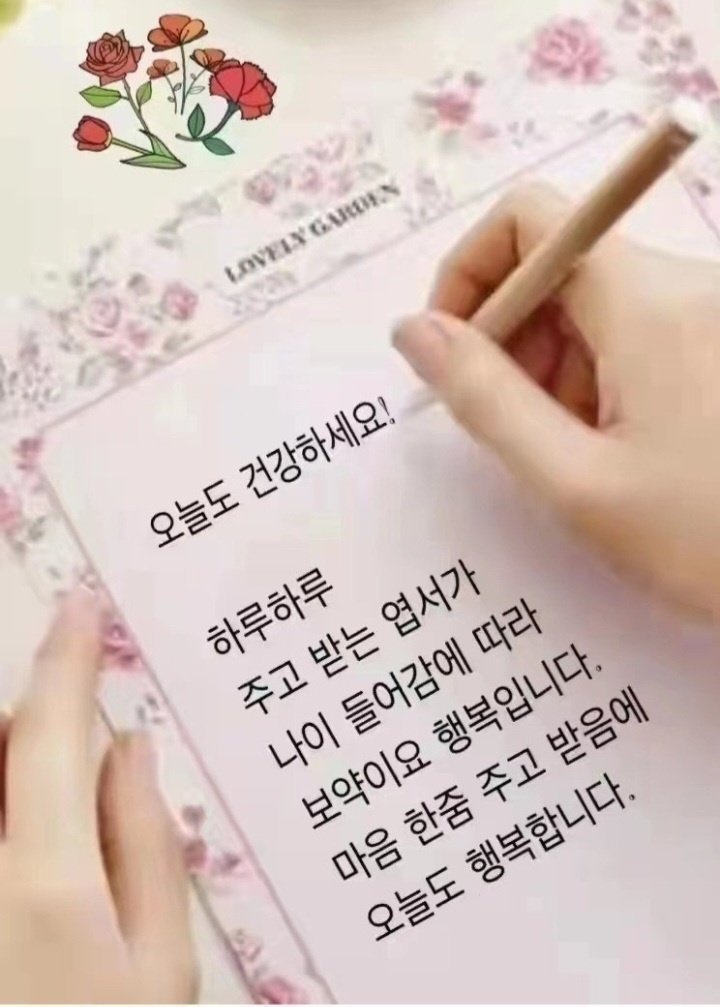 LOVELY GARDEN
오늘도 건강하세요!
하루하루
주고 받는 엽서가
나이 들어감에 따라
보약이요 행복입니다.
마음 한줌 주고 받음에
오늘도 행복합니다.